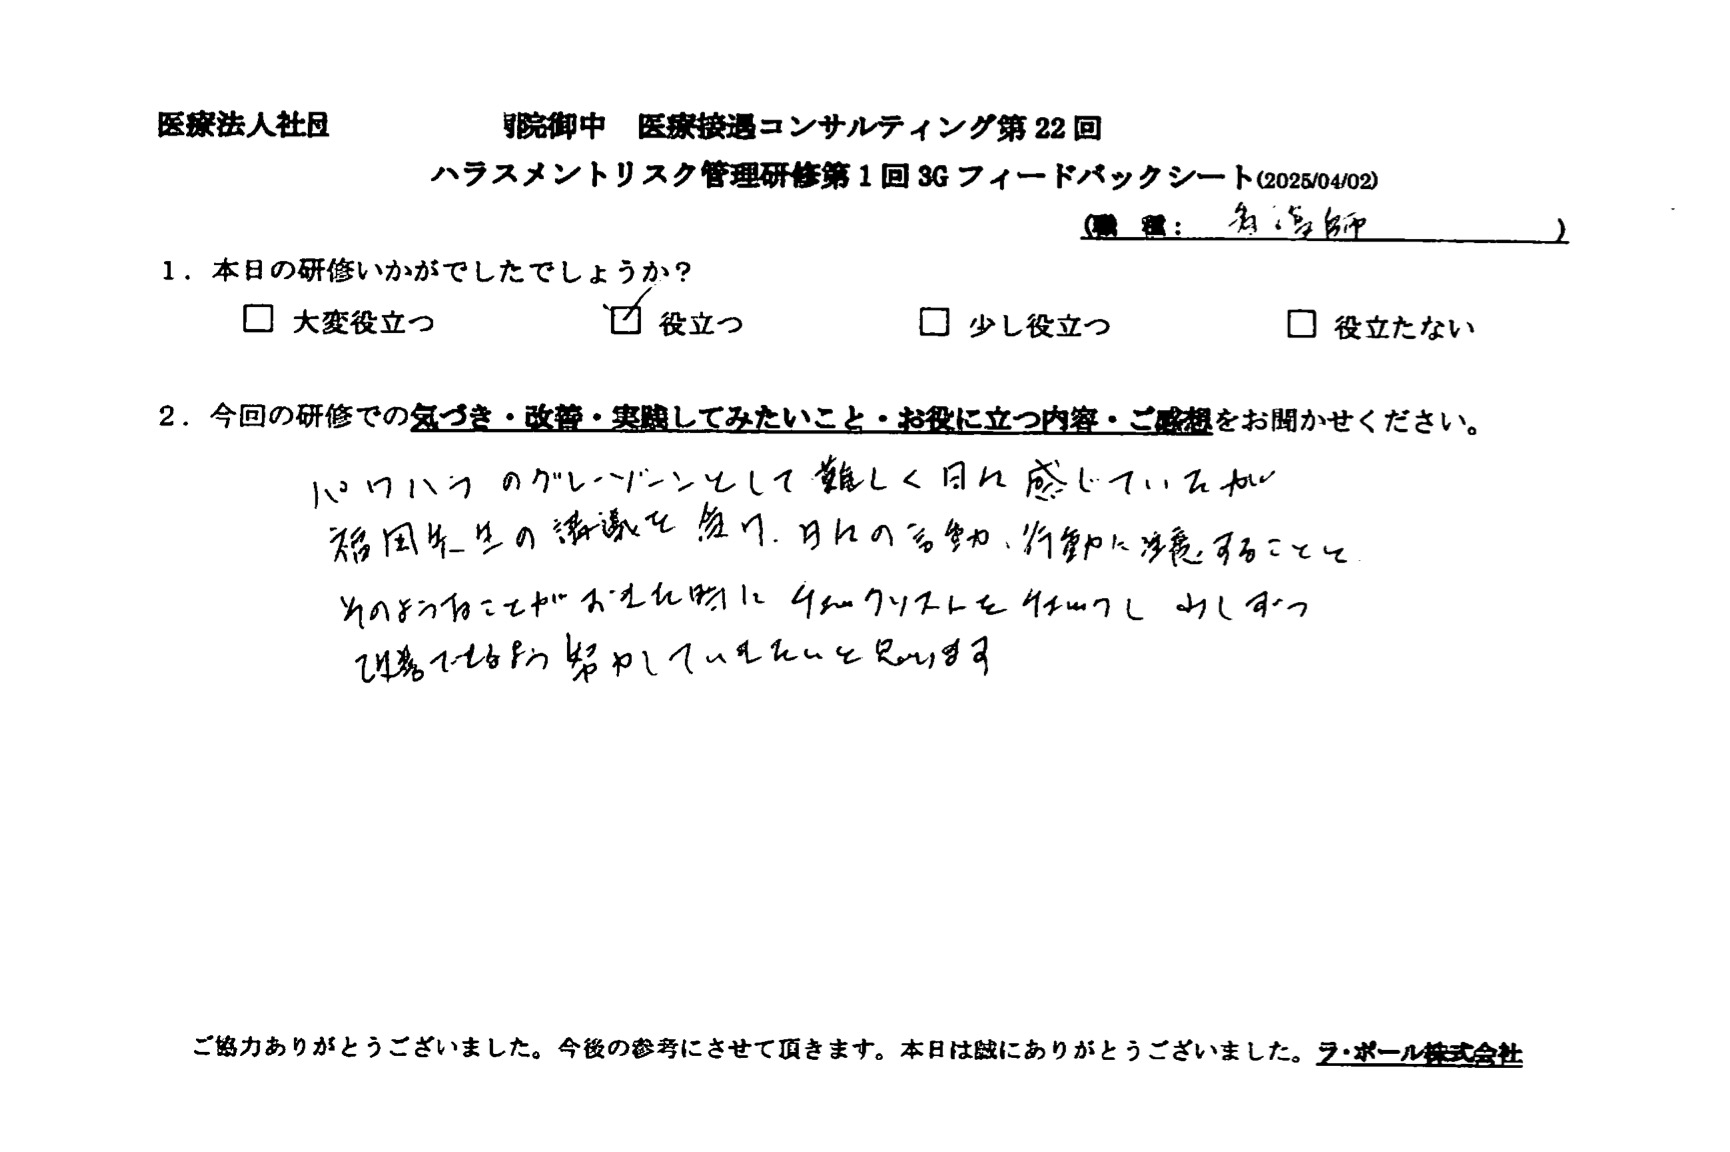 医療法人社団 院御中 医療接遇コンサルティング第22回
ハラスメントリスク管理研修第1回3Gフィードバックシート(2025/04/02)
(職 種： 看護師 )
1．本日の研修いかがでしたでしょうか？
□ 大変役立つ ☑ 役立つ □ 少し役立つ □ 役立たない
2．今回の研修での気づき・改善・実践してみたいこと・お役に立つ内容・ご感想をお聞かせください。
パワハラのグレーゾーンとして難しく日々感じていたが
福岡先生の講議を受け、日々の言動、行動に注意することと
そのようなことがおきた時にチェックリストをチェックし 少しずつ
改善できるよう努力していきたいと思います
ご協力ありがとうございました。今後の参考にさせて頂きます。本日は誠にありがとうございました。ラ・ポール株式会社